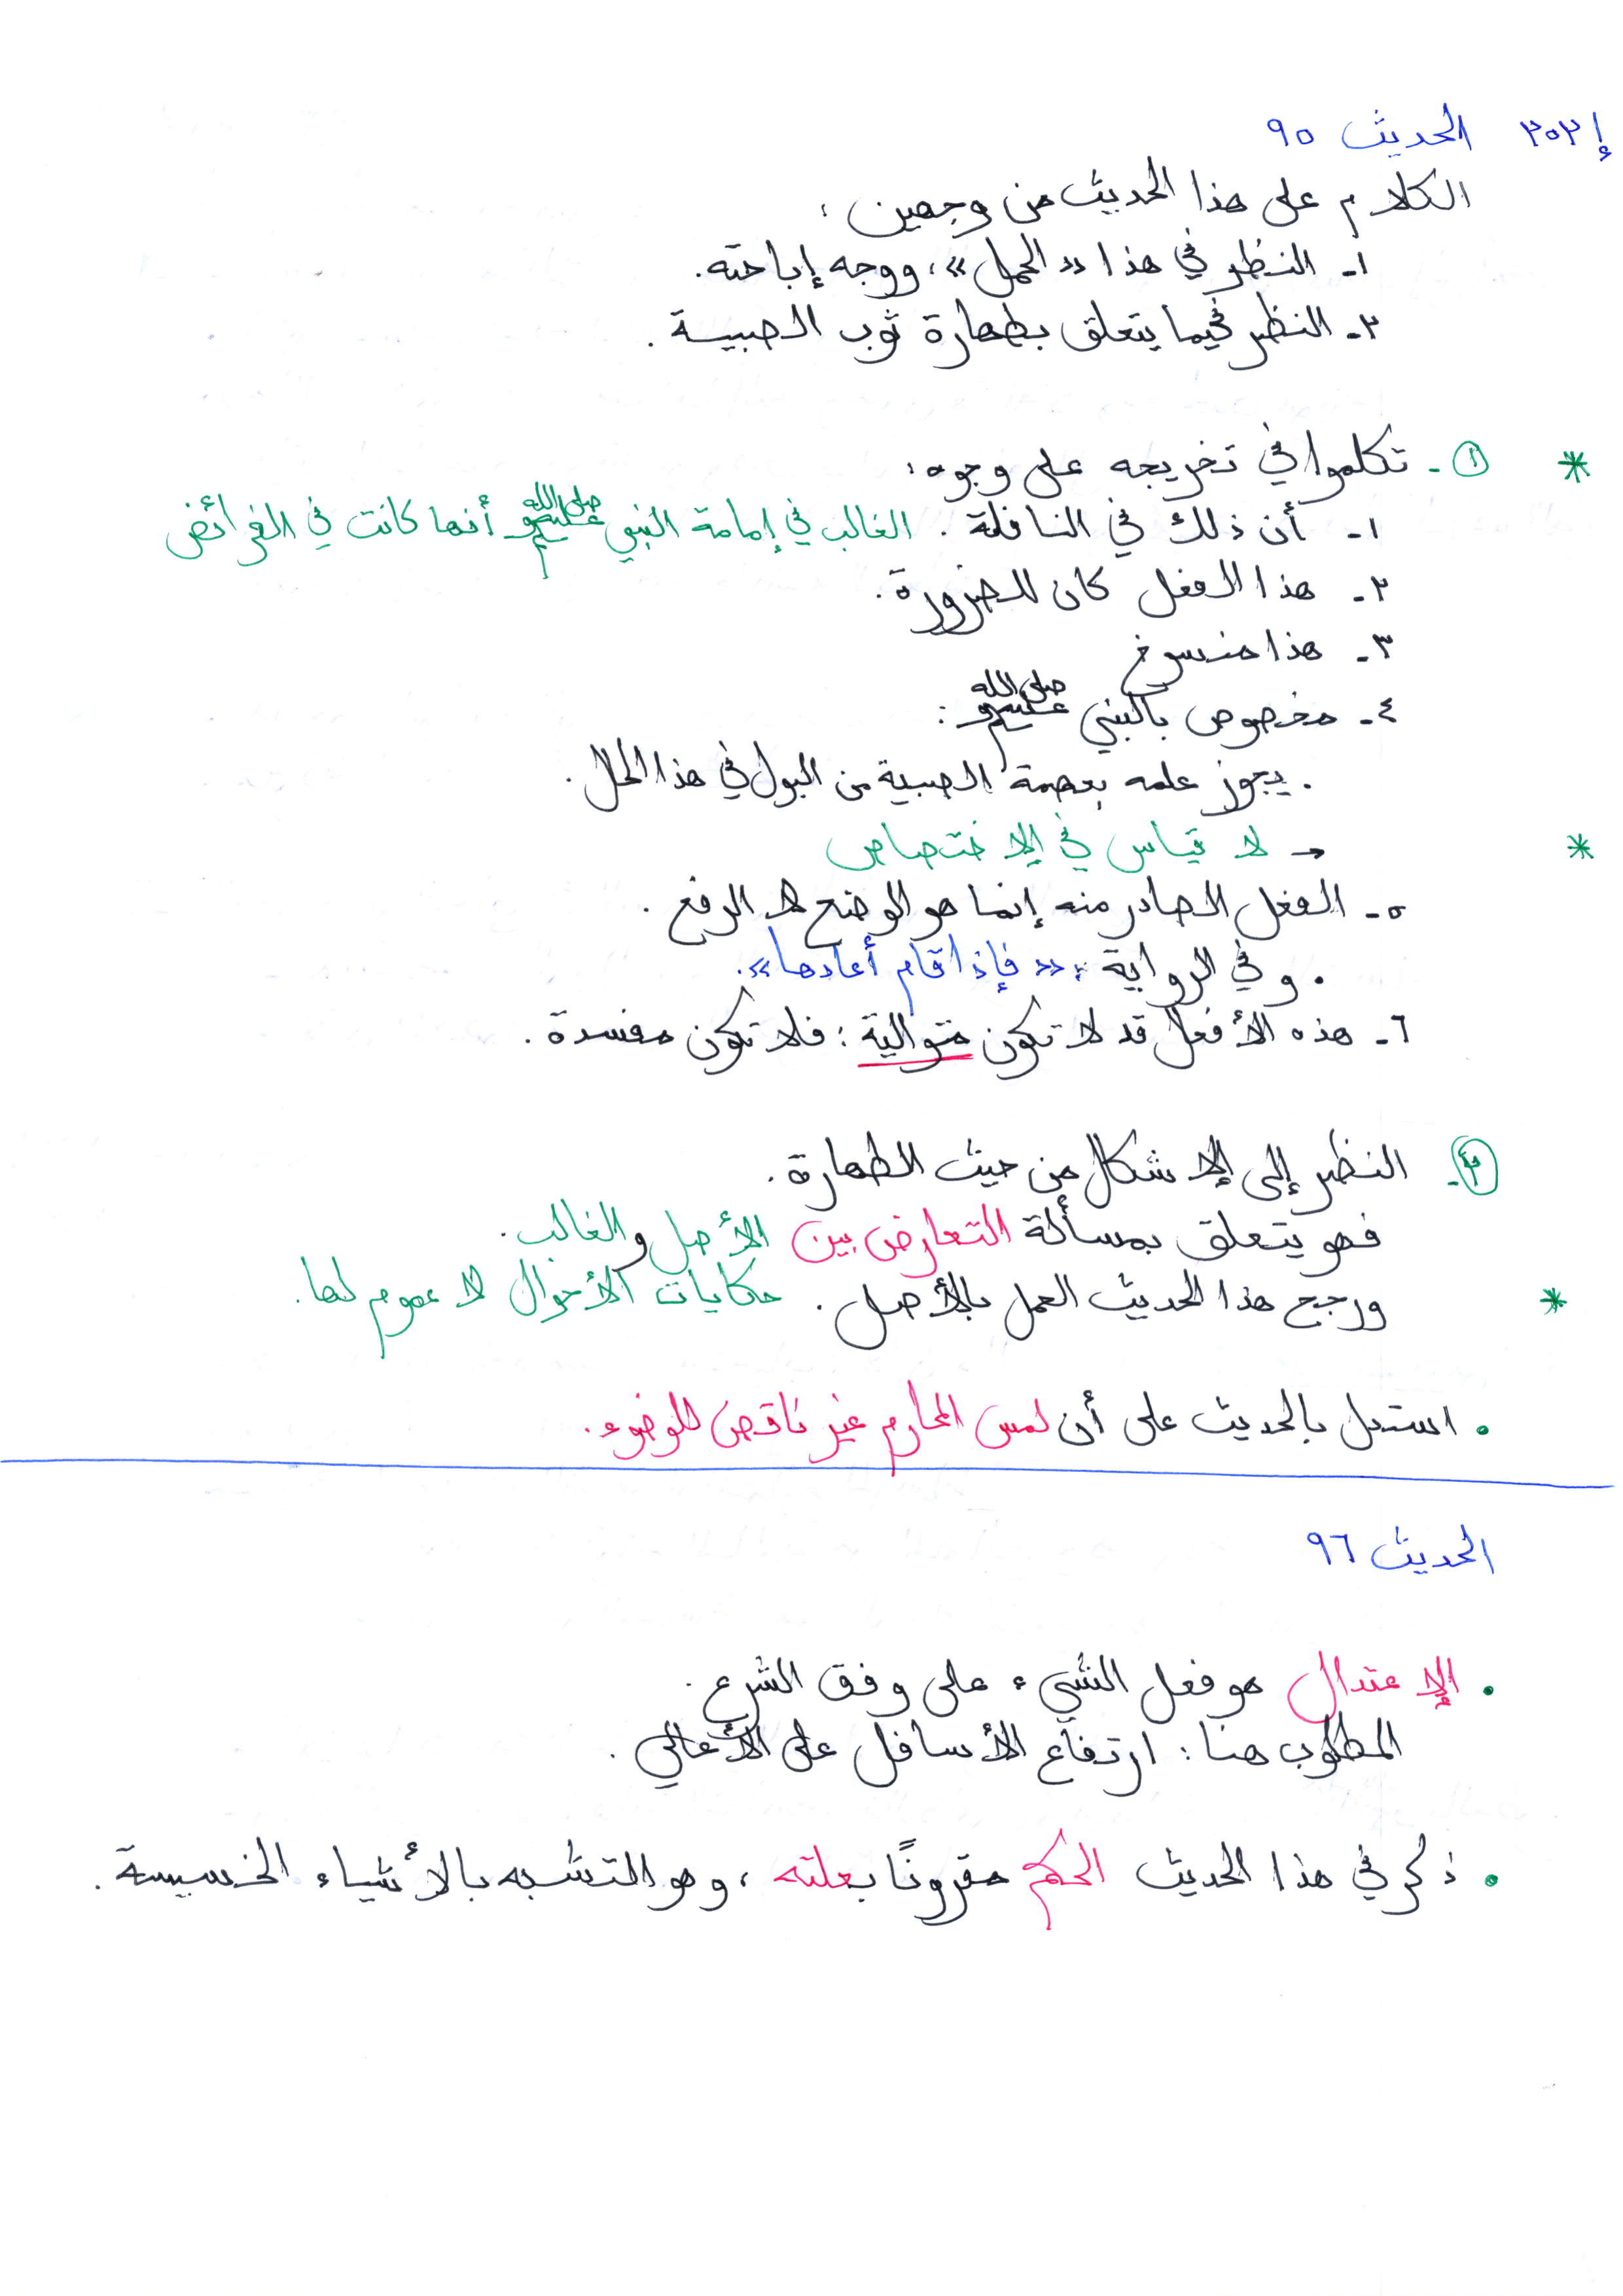 إ٢٠٢ الحديث ٩٥
الكلام على هذا الحديث من وجهين:
١- النظر في هذا «الحمل»، ووجه إباحته.
٢- النظر فيما يتعلق بطهارة ثوب الصبية.
* ①- تكلموا في تخريجه على وجوه:
١- أن ذلك في النافلة. الغالب في إمامة النبي صلى الله عليه وسلم أنها كانت في الفرائض
٢- هذا الفعل كان للضرورة.
٣- هذا منسوخ
٤- مخصوص بالنبي صلى الله عليه وسلم:
. يجوز علمه بعصمة الصبية من البول في هذا الحال.
* → لا قياس في الاختصاص
٥- الفعل الصادر منه إنما هو الوضع لا الرفع.
. وفي الرواية: «فإذا قام أعادها».
٦- هذه الأفعال قد لا تكون متوالية: فلا تكون مفسدة.
②- النظر إلى الإشكال من حيث الطهارة.
فهو يتعلق بمسألة التعارض بين الأصل والغالب.
* ورجح هذا الحديث العمل بالأصل. حكايات الأحوال لا عموم لها.
• استدل بالحديث على أن لمس المحارم غير ناقض للوضوء.
الحديث ٩٦
• الإعتدال هو فعل الشيء على وفق الشرع.
المطلوب هنا: ارتفاع الأسافل على الأعالي.
• ذكر في هذا الحديث الحكم مقرونًا بعلته، وهو التشبه بالأشياء الخسيسة.